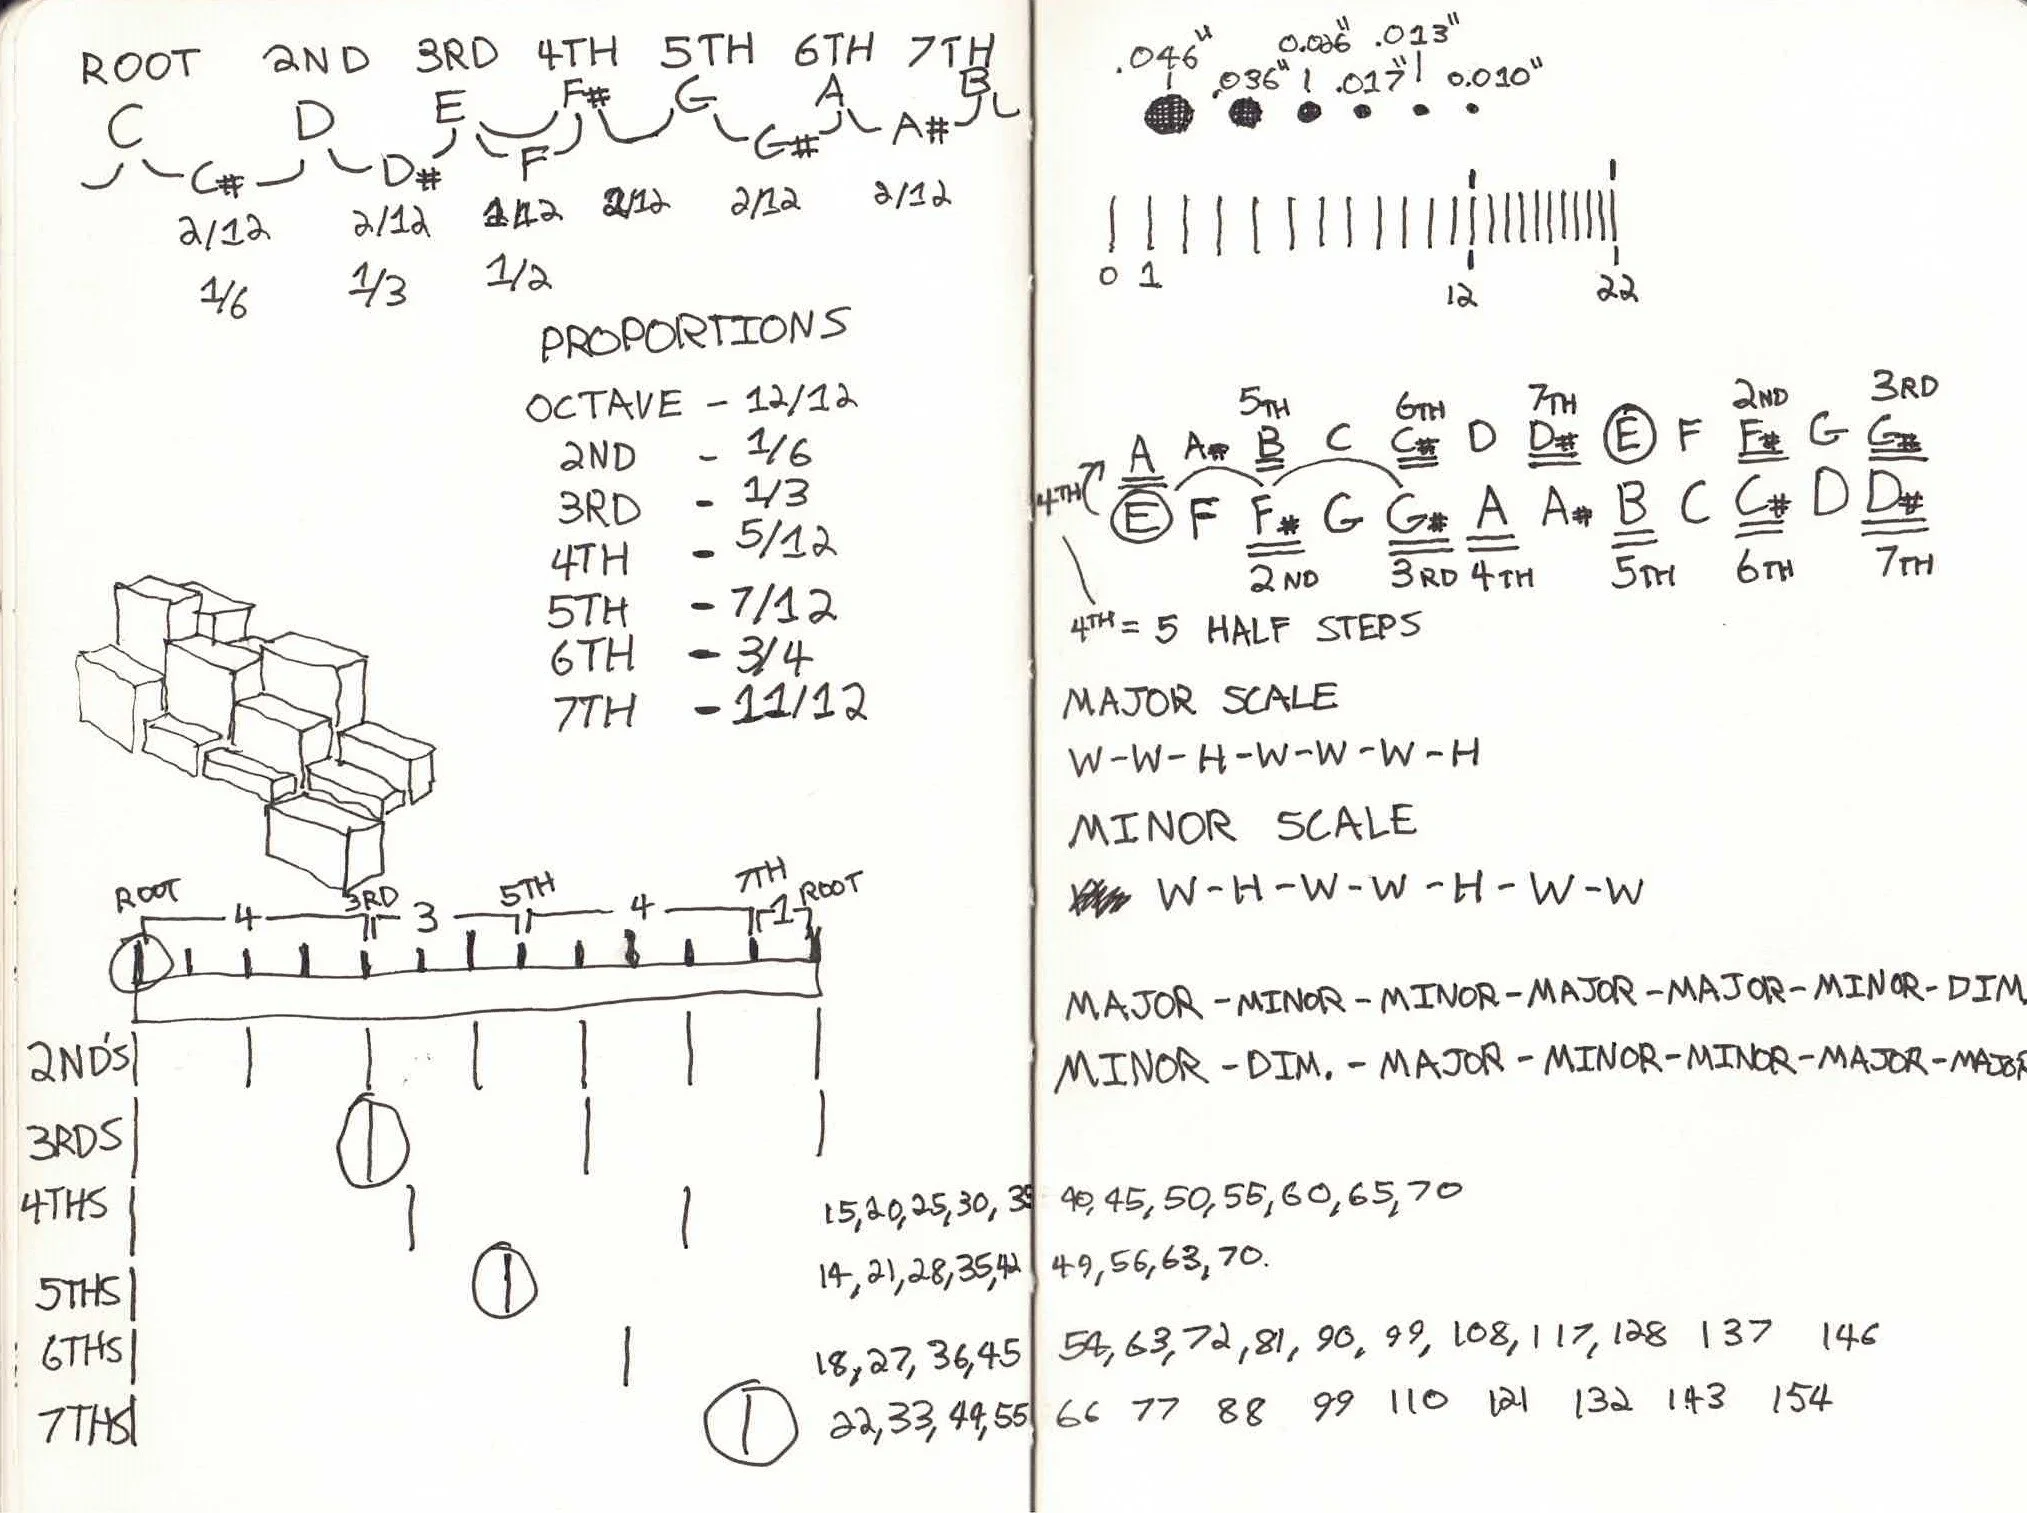 ROOT 2ND 3RD 4TH 5TH 6TH 7TH
C D E F# G A B
C# D# F G# A#
2/12 2/12 1/12 2/12 2/12 2/12
1/6 1/3 1/2
PROPORTIONS
OCTAVE - 12/12
2ND - 1/6
3RD - 1/3
4TH - 5/12
5TH - 7/12
6TH - 3/4
7TH - 11/12
ROOT 3RD 5TH 7TH ROOT
4 3 4 1
2ND'S
3RDS
4THS
5THS
6THS
7THS
.046" 0.026" .013"
.036" .017" 0.010"
0 1 12 22
5TH 6TH 7TH 2ND 3RD
A A# B C C# D D# E F F# G G#
4TH
E F F# G G# A A# B C C# D D#
2ND 3RD 4TH 5TH 6TH 7TH
4TH = 5 HALF STEPS
MAJOR SCALE
W-W-H-W-W-W-H
MINOR SCALE
W-H-W-W-H-W-W
MAJOR-MINOR-MINOR-MAJOR-MAJOR-MINOR-DIM
MINOR-DIM.-MAJOR-MINOR-MINOR-MAJOR-MAJOR
15,20,25,30,35 40,45,50,55,60,65,70
14,21,28,35,42 49,56,63,70.
18,27,36,45 54,63,72,81,90,99,108,117,128 137 146
22,33,44,55 66 77 88 99 110 121 132 143 154